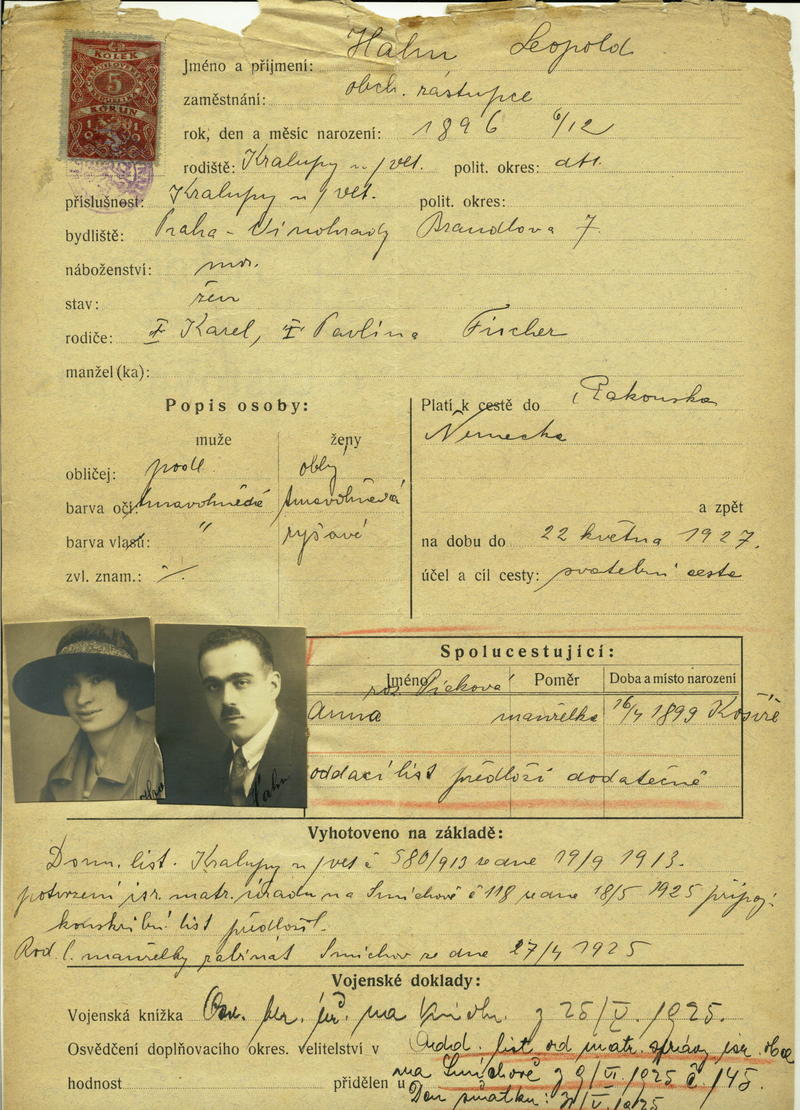 KOLEK
5
KORUN
Jméno a příjmení: Hahn Leopold
zaměstnání: obch. zástupce
rok, den a měsíc narození: 1896 6/12
rodiště: Kralupy n/vlt. polit. okres: dtt.
příslušnost: Kralupy n/vlt. polit. okres:
bydliště: Praha - Vinohrady Brandlova 7.
náboženství:
stav: žen
rodiče: Karel, Pavlína Fischer
manžel(ka):
Popis osoby:
muže ženy
obličej: podl oblý
barva očí: tmavohnědá tmavohnědá
barva vlasů: " ryšavé
zvl. znam.: ./.
Platí k cestě do Rakouska
Německa
a zpět
na dobu do 22 května 1927.
účel a cíl cesty: svatební cesta
Spolucestující:
Jméno Poměr Doba a místo narození
roz. Picková
Anna manželka 16/4 1899 Košíře
oddací list předloží dodatečně
Hahn
Vyhotoveno na základě:
Dom. list. Kralupy n/vlt č 580/913 ze dne 19/9 1913.
potvrzení isr. matr. úřadu na Smíchově č 118 ze dne 18/5 1925 připoj:
konskribní list předložil.
Rod. l. manželky rabinát Smíchov ze dne 27/4 1925
Vojenské doklady:
Vojenská knížka na z 25/V. 1925.
Osvědčení doplňovacího okres. velitelství v Odd. list od matr. správy isr. obce
na Smíchově z 9/VI. 1925 č. 145.
hodnost přidělen u
Den sňatku: 1925